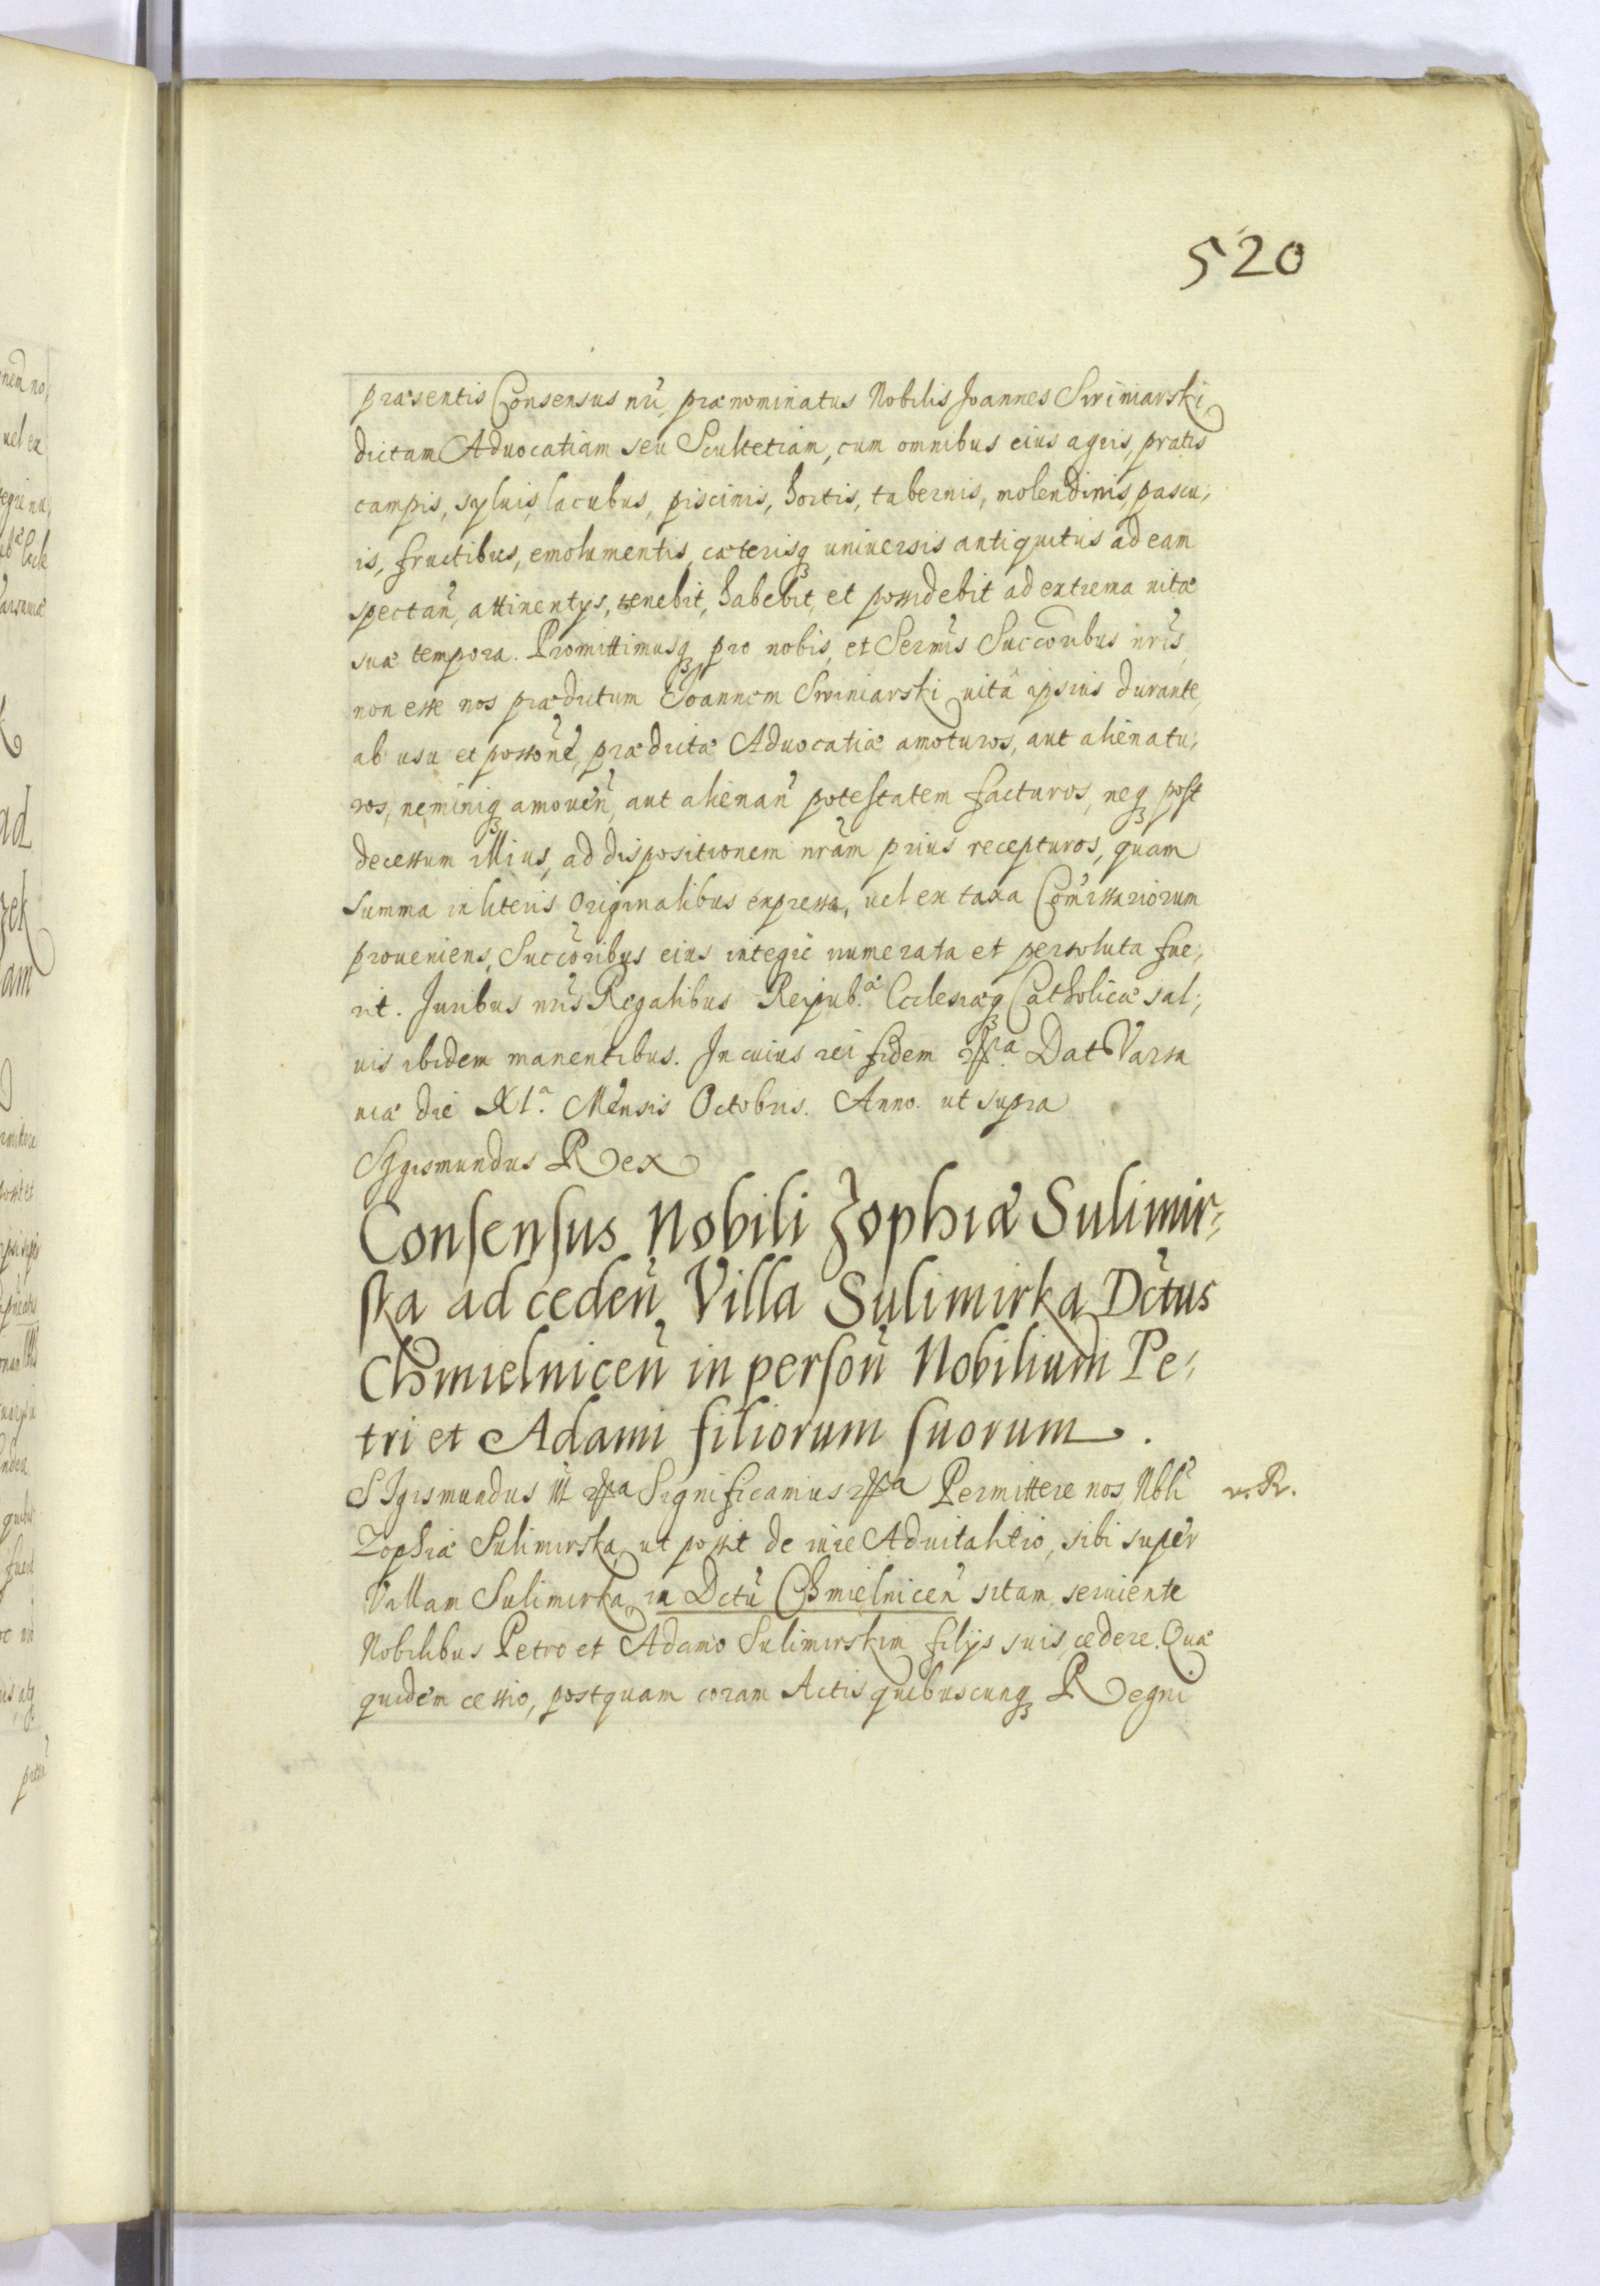 520
præsentis Consensus nri, prænominatus Nobilis Joannes Swiniarski
dictam Aduocatiam seu Scultetiam, cum omnibus eius agris, pratis
campis, syluis, lacubus, piscinis, hortis, tabernis, molendinis, pascu,
is, fructibus, emolumentis, cæterisq uniuersis antiquitus ad eam
spectan, attinentys, tenebit, habebit, et possidebit ad extrema uitæ
suæ tempora. Promittimusq pro nobis, et Sermis Succoribus nris,
non esse nos prædictum Joannem Swiniarski, uitâ ipsius durante,
ab usu et possone, prædictæ Aduocatiæ amoturos, aut alienatu,
ros, neminiq amouen, aut alienan potestatem facturos, neq post
decessum illius, ad dispositionem nram prius recepturos, quam
summa in literis Originalibus expressa, uel ex taxa Comissariorum
proueniens, Succoribus eius integre numerata et persoluta fue,
rit. Juribus nris Regalibus Reipub.æ Ecclesiæq Catholicæ sal,
uis ibidem manentibus. In cuius rei fidem Dat Varsa
uiæ die XI.a Mensis Octobris. Anno. ut supra
SIgismundus Rex
Consensus Nobili Zophiæ Sulimir-
ska ad ceden Villa Sulimirka Dctus
Chmielnicen in person Nobilium Pe-
tri et Adami filiorum suorum.
SIgismundus III Significamus Permittere nos, Nbli v. R.
Zophiæ Sulimirska, ut possit de iure Aduitalitio, sibi super
Villam Sulimirka, in Dctu Chmielnicen sitam, seruiente
Nobilibus Petro et Adamo Sulimirskim filijs suis, cedere. Quæ
quidem cessio, postquam coram Actis quibuscunq Regni